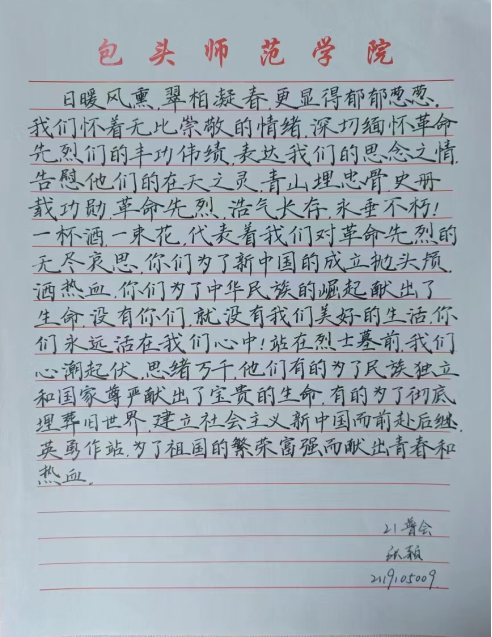 包头师范学院
日暖风熏,翠柏凝春,更显得郁郁葱葱,
我们怀着无比崇敬的情绪,深切缅怀革命
先烈们的丰功伟绩,表达我们的思念之情,
告慰他们的在天之灵,青山埋忠骨,史册
载功勋,革命先烈,浩气长存,永垂不朽!
一杯酒,一束花,代表着我们对革命先烈的
无尽哀思,你们为了新中国的成立抛头损,
洒热血,你们为了中华民族的崛起献出了
生命,没有你们,就没有我们美好的生活,你
们永远活在我们心中!站在烈士墓前,我们
心潮起伏,思绪万千,他们有的为了民族独立
和国家尊严献出了宝贵的生命,有的为了彻底
埋葬旧世界,建立社会主义新中国而前赴后继,
英勇作站,为了祖国的繁荣富强而献出青春和
热血。
21普会
张颖
2119105009